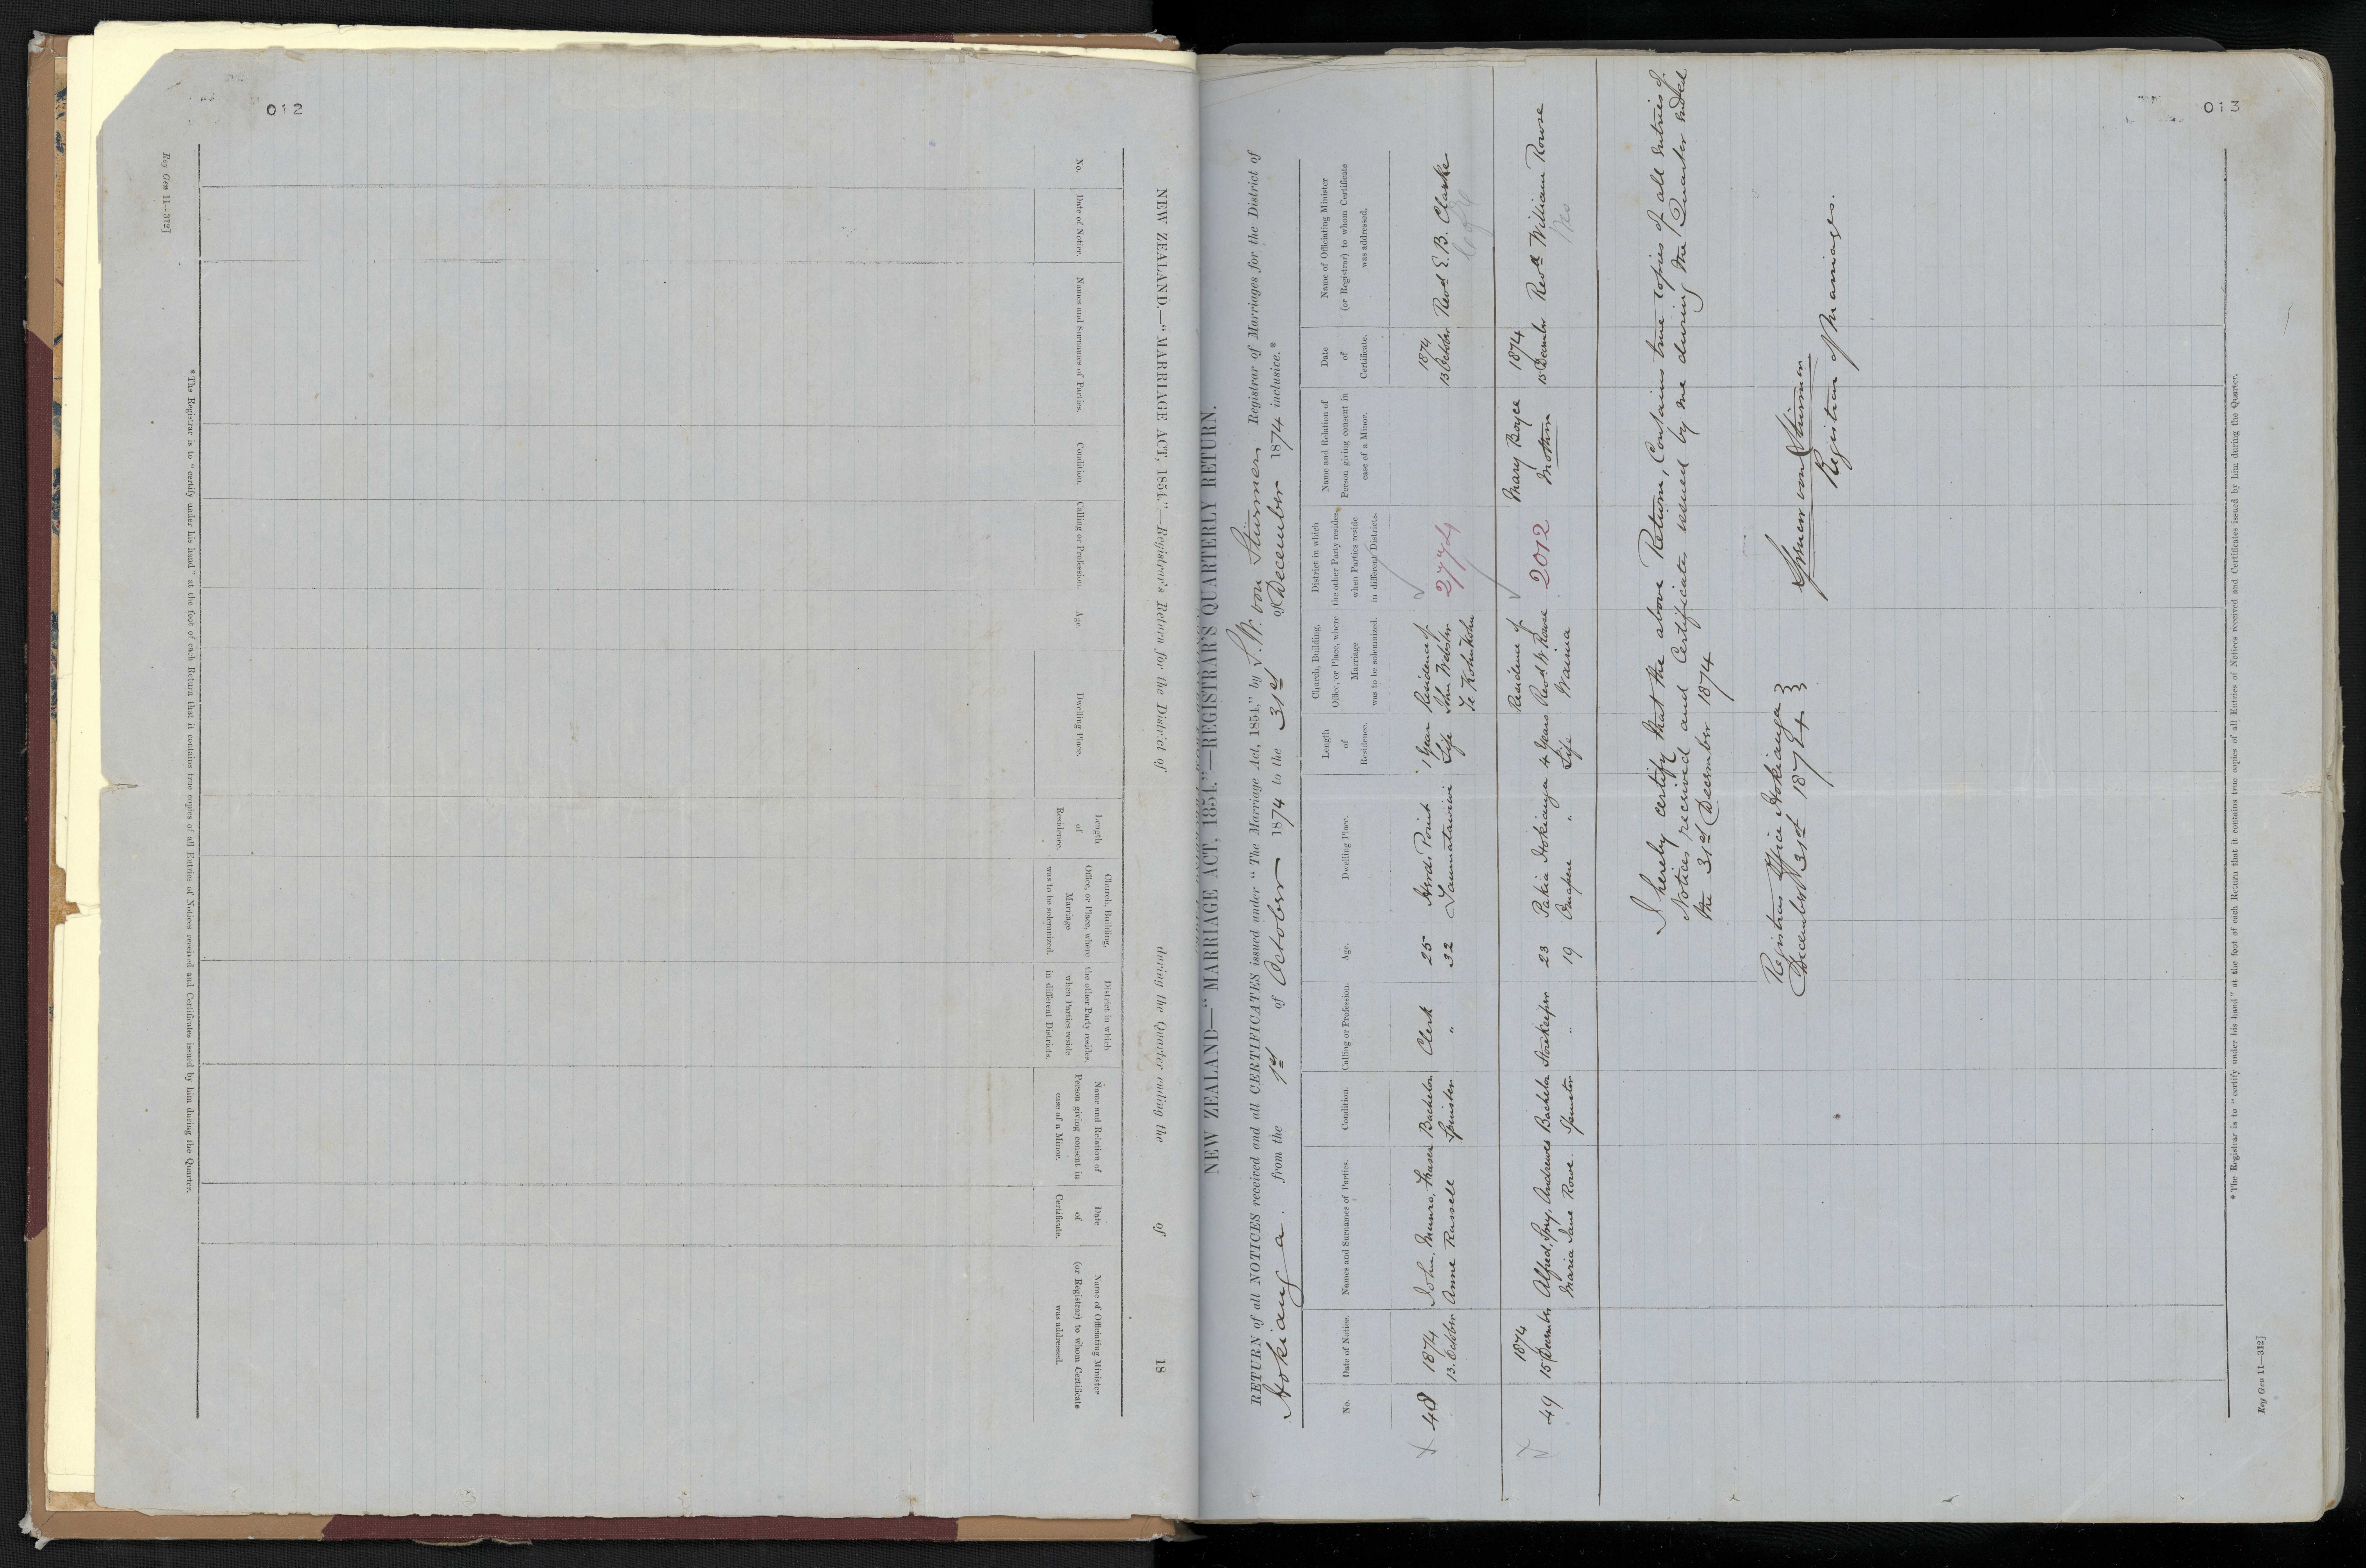 012
NEW ZEALAND.—"MARRIAGE ACT, 1854."—Registrar's Return for the District of during the Quarter ending the of 18
No.
Date of Notice.
Names and Surnames of Parties.
Condition.
Calling or Profession.
Age.
Dwelling Place.
Length
of
Residence.
Church, Building,
Office, or Place, where
Marriage
was to be solemnized.
District in which
the other Party resides,
when Parties reside
in different Districts.
Name and Relation of
Person giving consent in
case of a Minor.
Date
of
Certificate.
Name of Officiating Minister
(or Registrar) to whom Certificate
was addressed.
* The Registrar is to "certify under his hand" at the foot of each Return that it contains true copies of all Entries of Notices received and Certificates issued by him during the Quarter.
Reg Gen 11—312]
013
NEW ZEALAND—"MARRIAGE ACT, 1854."—REGISTRAR'S QUARTERLY RETURN.
RETURN of all NOTICES received and all CERTIFICATES issued under "The Marriage Act, 1854," by S. W. von Stürmer, Registrar of Marriages for the District of
Hokianga. from the 1st of October 1874 to the 31st of December 1874 inclusive.*
No.
Date of Notice.
Names and Surnames of Parties.
Condition.
Calling or Profession.
Age.
Dwelling Place.
Length
of
Residence.
Church, Building,
Office, or Place, where
Marriage
was to be solemnized.
District in which
the other Party resides,
when Parties reside
in different Districts.
Name and Relation of
Person giving consent in
case of a Minor.
Date
of
Certificate.
Name of Officiating Minister
(or Registrar) to whom Certificate
was addressed.
48
1874
13. October
John, Munro, Fraser
Anne Russell
Bachelor
Spinster
Clerk
"
25
32
Herds Point
1 Year
Life
Residence of
John Webster
Te Kohukohu
2774
1874
13 October
Revd E. B. Clarke
49
1874
15 December
Alfred, Spry, Andrewes
Maria Jane Rowse.
Bachelor
Spinster
Storekeeper
"
23
19
Pakia Hokianga
Omapere "
4 Years
Life
Residence of
Revd W Rowse
Waima
2012
Mary Boyce
Mother
1874
15 December
Revd William Rowse
I hereby certify that the above Return, Contains true copies of all Entries of
Notices received and Certificates issued by me during the Quarter ended
the 31st December 1874
Registrars Office Hokianga }
December 31st 1874 }
Spencer von Stürmer
Registrar of Marriages.
* The Registrar is to "certify under his hand" at the foot of each Return that it contains true copies of all Entries of Notices received and Certificates issued by him during the Quarter.
Reg Gen 11—312]